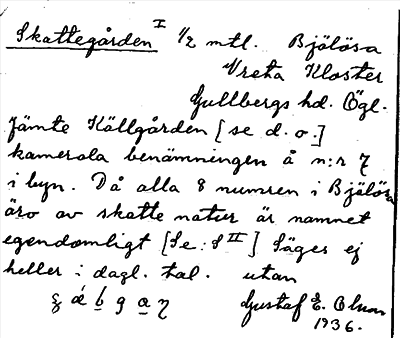 Skattegården I 1/2 mtl. Bjölösa
Vreta Kloster
Gullbergs hd. Ögl.
Jämte Källgården [se d. o.]
kamerala benämningen å n:r 7
i byn. Då alla 8 numren i Bjölösa
äro av skatte natur är namnet
egendomligt [Se: S II] Säges ej
heller i dagl. tal. utan
Gustaf E. Olson
1936.